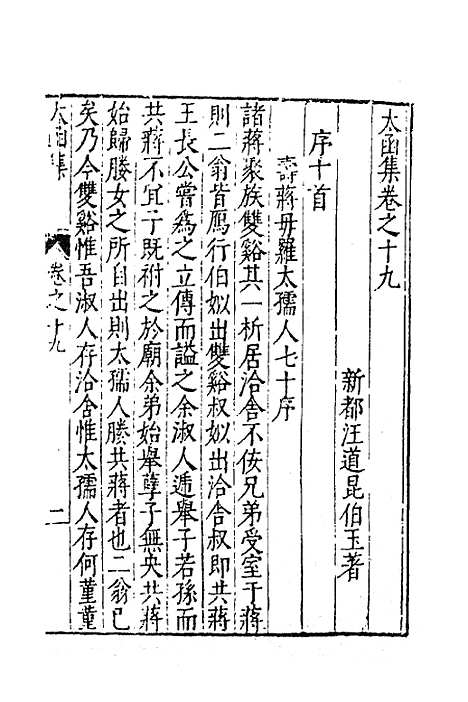 太函集卷之十九
新都汪道昆伯玉著
序十首
壽蔣母羅太孺人七十序
諸蔣聚族雙谿其一析居洽舍不佞兄弟受室于蔣
則二翁皆鴈行伯姒出雙谿叔姒出洽舍叔即共蔣
王長公嘗爲之立傳而謚之余淑人遞舉子若孫而
共蔣不宜子既祔之於廟余弟始舉孽子無央共蔣
始歸媵女之所自出則太孺人媵共蔣者也二翁已
矣乃今雙谿惟吾淑人存洽舍惟太孺人存何菫菫
太函集
卷之十九